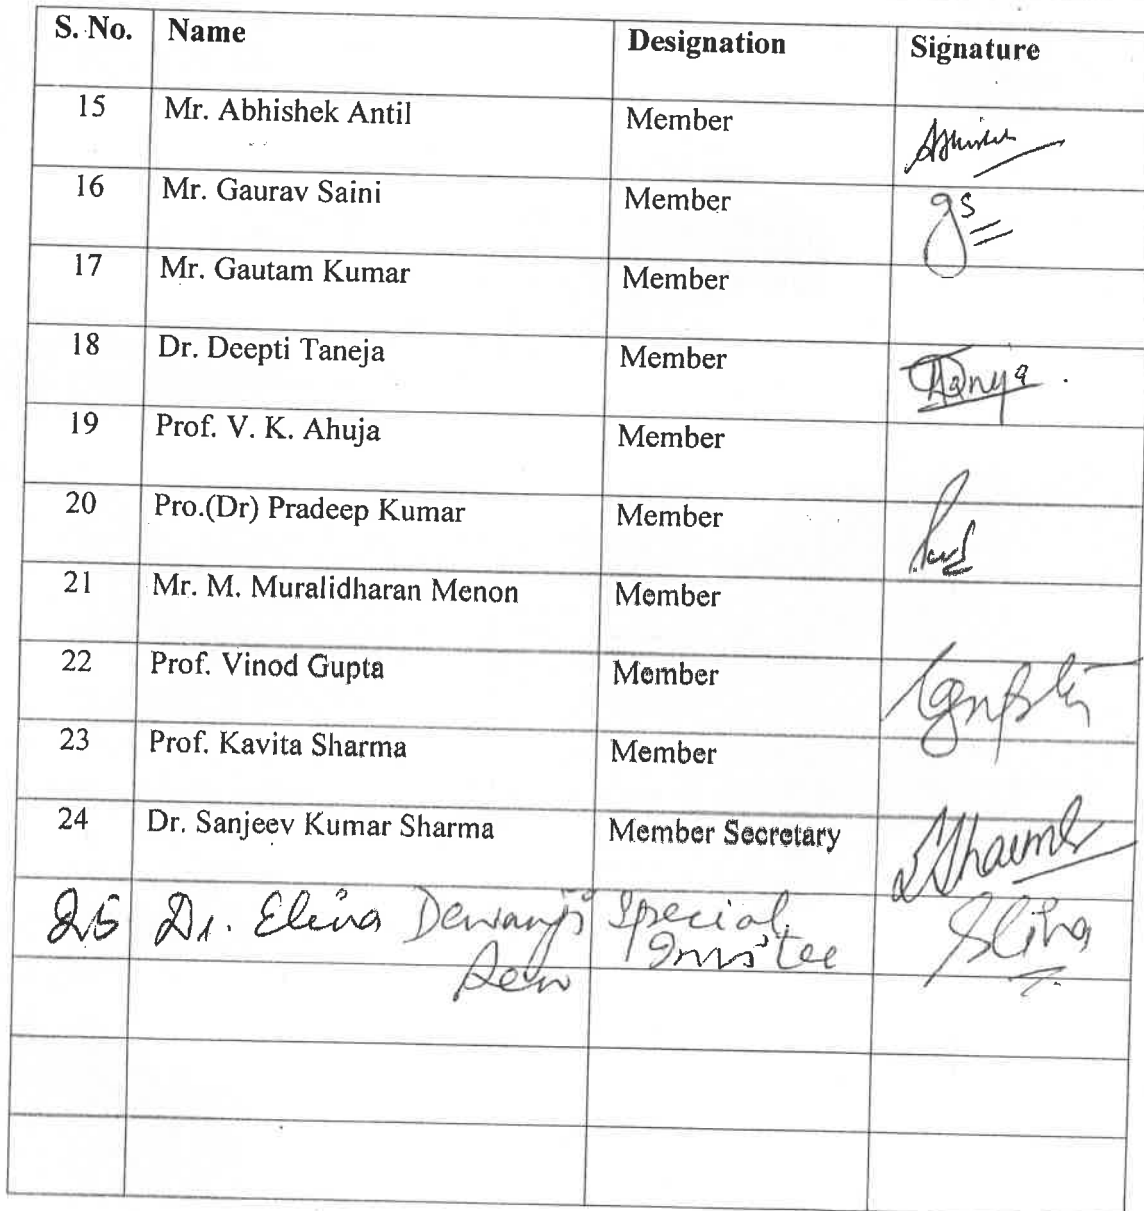 S. No. Name Designation Signature
15 Mr. Abhishek Antil Member Abhishek
16 Mr. Gaurav Saini Member gs
17 Mr. Gautam Kumar Member
18 Dr. Deepti Taneja Member DTaneja
19 Prof. V. K. Ahuja Member
20 Pro.(Dr) Pradeep Kumar Member
21 Mr. M. Muralidharan Menon Member
22 Prof. Vinod Gupta Member Gupta
23 Prof. Kavita Sharma Member
24 Dr. Sanjeev Kumar Sharma Member Secretary SSharma
25 Dr. Elina Dewanji Special
Invitee Elina